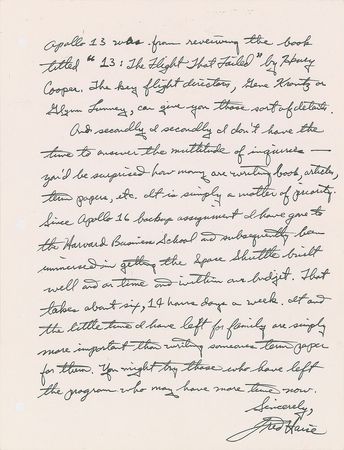 Apollo 13 was from reviewing the book
titled "13: The Flight That Failed" by Henry
Cooper. The key flight directors, Gene Krantz or
Glynn Lunney, can give you those sort of details.
And secondly I secondly I don't have the
time to answer the multitude of inquiries —
you'd be surprised how many are writing book, articles,
term papers, etc. It is simply a matter of priority.
Since Apollo 16 backup assignment I have gone to
the Harvard Business School and subsequently been
immersed in getting the Space Shuttle built
well and on time and within our budget. That
takes about six, 14 hours days a week. It and
the little time I have left for family are simply
more important than writing someones term paper
for them. You might try those who have left
the program who may have more time now.
Sincerely,
Fred Haise